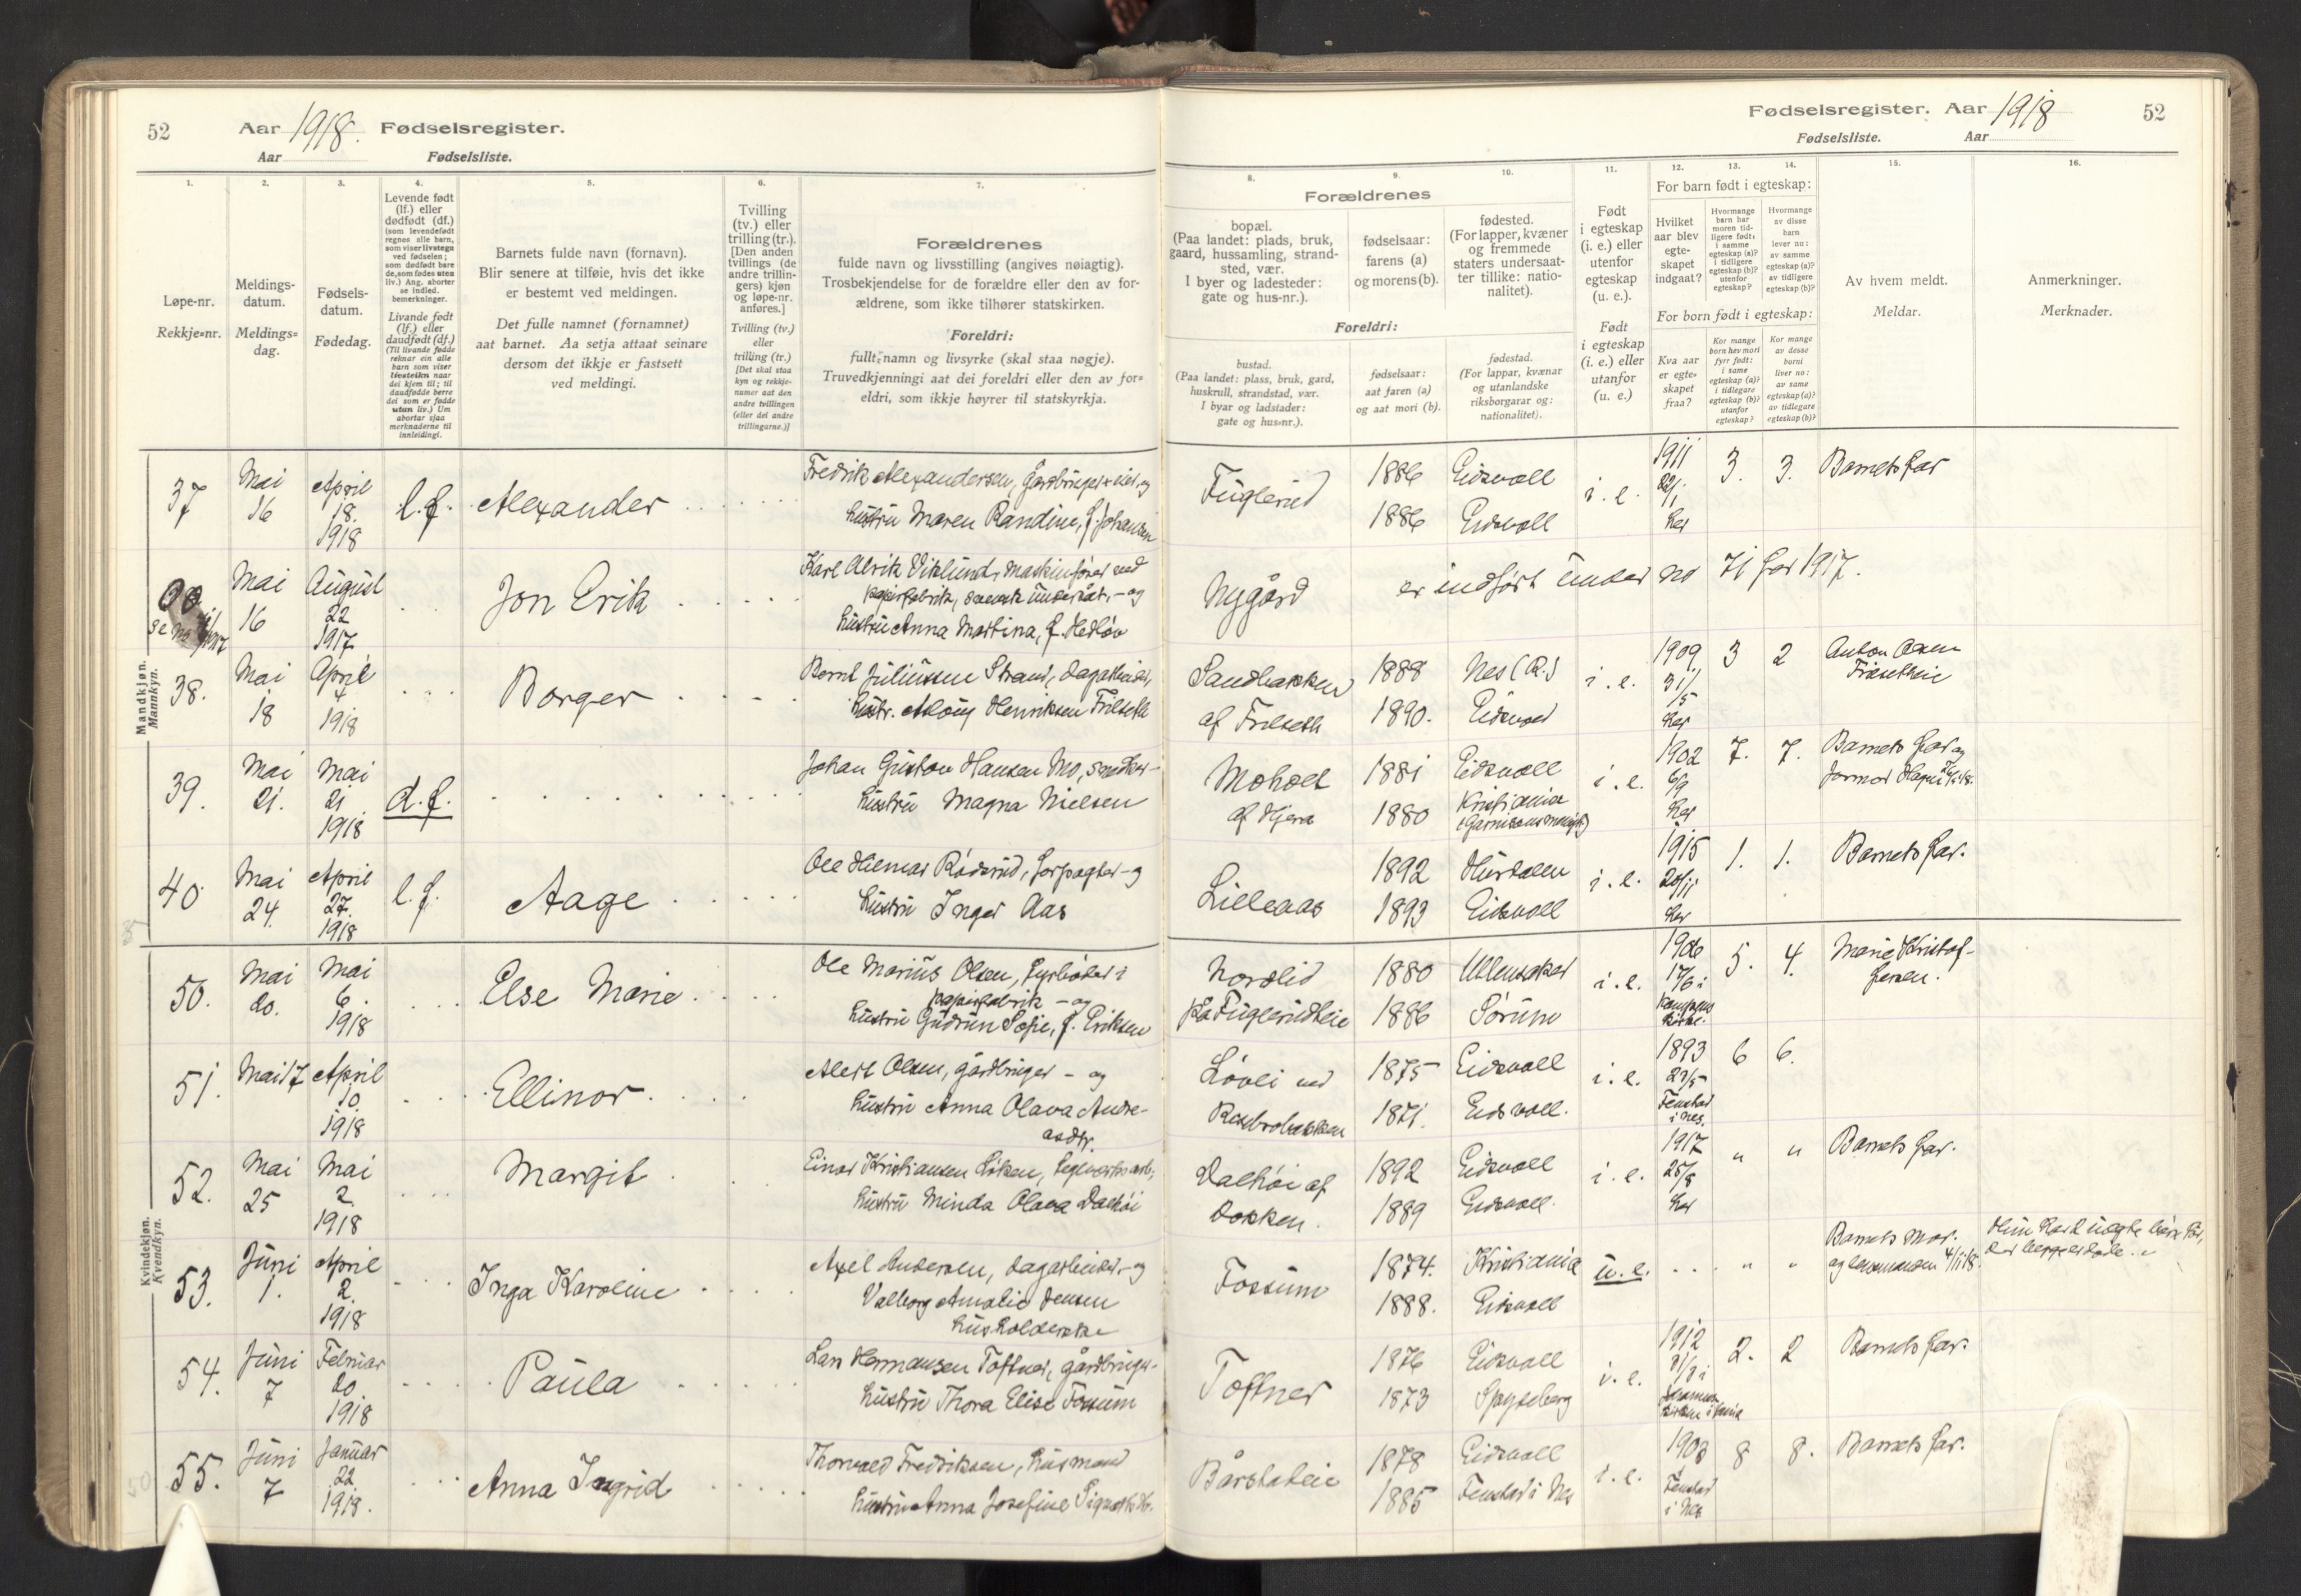 52
Aar 1918. Fødselsregister.
Aar Fødselsliste.
1. 2. 3. 4. 5. 6. 7.
Løpe-nr.
Rekkje=nr.
Meldings-
datum.
Meldings=
dag.
Fødsels-
datum.
Fødedag.
Levende født
(lf.) eller
dødfødt (df.)
(som levendefødt
regnes alle barn,
som viser livstegn
ved fødselen;
som dødfødt bare
de, som fødes uten
liv.) Ang. aborter
se indled.
bemerkninger.
Livande født
(lf.) eller
daudfødt (df.)
(Til livande fødde
reknar ein alle
barn som viser
livsteikn naar
dei kjem til; til
daudfødde berre
dei som er fødde
utan liv.) Um
abortar sjaa
merknaderne til
innleidingi.
Barnets fulde navn (fornavn).
Blir senere at tilføie, hvis det ikke
er bestemt ved meldingen.
Det fulle namnet (fornamnet)
aat barnet. Aa setja attaat seinare
dersom det ikkje er fastsett
ved meldingi.
Tvilling
(tv.) eller
trilling (tr.).
[Den anden
tvillings (de
andre trillin-
gers) kjøn
og løpe-nr.
anføres.]
Tvilling (tv.)
eller
trilling (tr.)
[Det skal staa
kyn og rekkje-
numer aat den
andre tvillingen
(eller dei andre
trillingarne.)]
Forældrenes
fulde navn og livsstilling (angives nøiagtig).
Trosbekjendelse for de forældre eller den av for-
ældrene, som ikke tilhører statskirken.
Foreldri:
fullt namn og livsyrke (skal staa nøgje).
Truvedkjenningi aat dei foreldri eller den av for=
eldri, som ikkje høyrer til statskyrkja.
Mandkjøn.
Mannkyn.
37 Mai 16 April 18. 1918 l.f. Alexander
Fredrik Alexandersen, gårdbruger + eier, og
hustru Maren Randine, f. Johansen
Mai 16 August 22 1917 Jon Erik
Karl Alrik Viklund, maskinfører ved
papirfabrik, svensk undersåt, - og
hustru Anna Martina, f. Hedløv
38. Mai 18 April 4 1918 Borger
Bernt Juliussen Strand, dagarbeider,
hustr. Aslaug Henriksen Frilseth
39. Mai 21. Mai 21. 1918 d.f.
Johan Gustav Hansen Mo, snedker -
hustru Magna Nielsen
40. Mai 24. April 27. 1918 l.f. Aage
Ole Hilmar Råderud, forpagter - og
hustru Inger Aas
Kvindekjøn.
Kvendkyn.
50. Mai 20. Mai 6. 1918 Else Marie
Ole Marius Olsen, fyrbøter i
papirfabrik - og
hustru Gudrun Sofie, f. Eriksen
51. Mai 17 April 10. 1918 Ellinor
Alert Olsen, gårdbruger - og
hustru Anna Olava Andre-
asdtr.
52. Mai 25 Mai 2. 1918 Margit
Einar Kristiansen Løken, teglverksarb.,
hustru Minda Olava Dalhøi
53. Juni 1. April 2. 1918 Inga Karoline
Axel Andersen, dagarbeider, - og
Valborg Amalie Jensen
husholderske
54. Juni 7 Februar 20. 1918 Paula
Lars Hermansen Toftner, gårdbruger -
hustru Thora Elise Fossum
55. Juni 7 Januar 22 1918. Anna Ingrid
Thorvald Fredriksen, husmand
hustru Anna Josefine
Fødselsregister. Aar 1918
52
Fødselsliste. Aar
8. 9. 10. 11. 12. 13. 14. 15. 16.
Forældrenes
bopæl.
(Paa landet: plads, bruk,
gaard, hussamling, strand-
sted, vær.
I byer og ladesteder:
gate og hus-nr.).
fødselsaar:
farens (a)
og morens (b).
fødested.
(For lapper, kvæner
og fremmede
staters undersaat-
ter tillike: natio-
nalitet).
Foreldri:
bustad.
(Paa landet: plass, bruk, gard,
huskrull, strandstad, vær.
I byar og ladstader:
gate og hus=nr.).
fødselsaar:
aat faren (a)
og aat mori (b).
fødestad.
(For lappar, kvænar
og utanlandske
riksborgarar og:
nationalitet).
Født
i egteskap
(i. e.) eller
utenfor
egteskap
(u. e.).
Født
i egteskap
(i. e.) eller
utanfor
(u. e.)
For barn født i egteskap:
Hvilket
aar blev
egte-
skapet
indgaat?
Hvormange
barn har
moren tid-
ligere født:
i samme
egteskap (a)?
i tidligere
egteskap (b)?
utenfor
egteskap?
Hvormange
av disse
barn
lever nu:
av samme
egteskap (a)?
av tidligere
egteskap (b)?
For born født i egteskap:
Kva aar
er egte=
skapet
fraa?
Kor mange
born hev mori
fyrr født:
i same
egteskap (a)?
i tidlegare
egteskap (b)?
utanfor
egteskap?
Kor mange
av desse
borni
liver no:
av same
egteskap (a)?
av tidlegare
egteskap (b)?
Av hvem meldt.
Meldar.
Anmerkninger.
Merknader.
Fuglerud 1886 Eidsvoll i. e. 1911 22/1 her 3. 3. Barnets far
1886 Eidsvoll
Nygård er indført under no 71 for 1917.
Sandbakken 1888 Nes (R.) i. e. 1909 31/5 her 3 2 Anton Olsen
af Frilseth 1890. Eidsvoll
Moholt 1881 Eidsvoll i. e. 1902 6/9 her 7. 7. Barnets far og
af Hjera 1880 Kristiania
(Garnisonsmenigh.)
Lilleaas 1892 Hurdalen i. e. 1915 20/11 her 1. 1. Barnets far.
1893 Eidsvoll
Nordlid 1880 Ullensaker i. e. 1906 17/6 i 5. 4. Marie Kristof-
fersen.
på Fuglerudheie 1886 Sørum Kampens kirke.
Løvli ved 1875 Eidsvoll i. e. 1893 27/5 6 6.
1871. Eidsvoll. Fenstad i Nes.
Dalhøi af 1892 Eidsvoll i. e. 1917 25/8 her " " Barnets far.
Dokken. 1889 Eidsvoll.
Fossum 1874. Kristiania u. e. " " Barnets mor.
og lensmannen 4/11 18.
1888. Eidsvoll
Toftner 1876 Eidsvoll i. e. 1912 2. 2 Barnets far.
1873 Spydeberg
Bårstaheie 1878 Eidsvoll i. e. 1903 8 8. Barnets far.
1885 Fenstad i Nes Fenstad i Nes